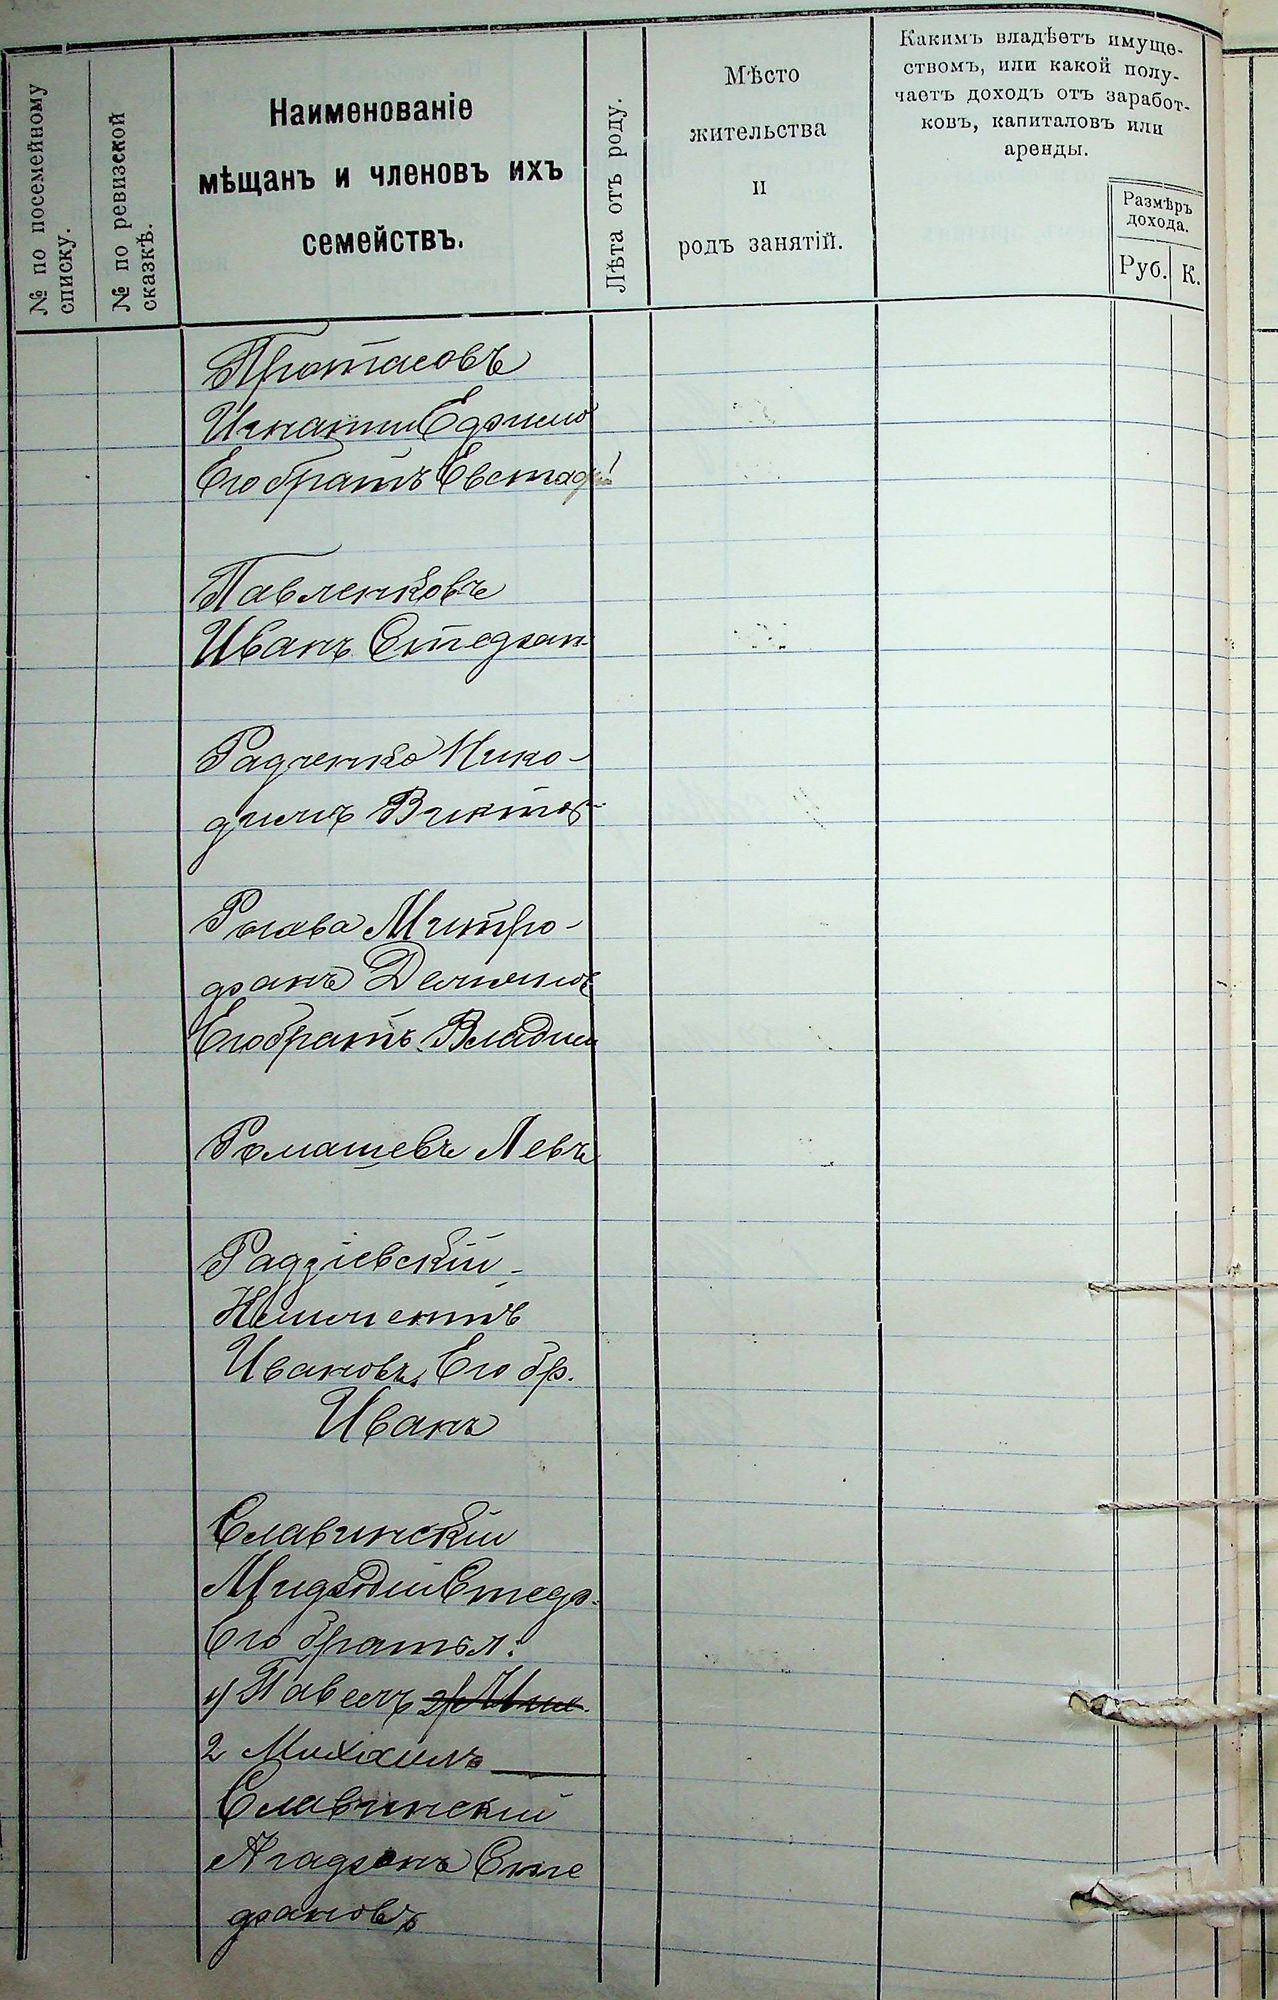 № по посемейному
списку.
№ по ревизской
сказкѣ.
Наименованіе
мѣщанъ и членовъ ихъ
семействъ.
Лѣта отъ роду.
Мѣсто
жительства
и
родъ занятій.
Какимъ владѣетъ имуще-
ствомъ, или какой полу-
чаетъ доходъ отъ заработ-
ковъ, капиталовъ или
аренды.
Размѣръ
дохода.
Руб.
К.
Протасовъ
Игнатій Ефимо
Его братъ Евстафі
Павленковъ
Иванъ Стефан.
Радченко Нико-
димъ Виктор-
Рогава Митро-
фанъ Демьянов
Его братъ Владим
Ромашевъ Левъ
Радзіевскій
Климентъ
Ивановъ, Его бр.
Иванъ
Славинскій
Мифодій Стеф.
Его братья:
1) Павелъ
2 Михаилъ
Славинскій
Агафонъ Сте
фановъ